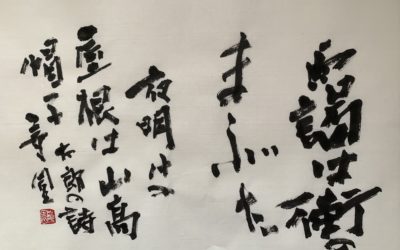 は街の
まぶた
夜明けの
屋根は山高
帽子
太郎の詩